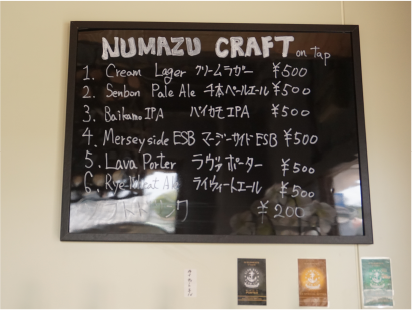 NUMAZU CRAFT on tap
1. Cream Lager クリームラガー ¥500
2. Senbon Pale Ale 千本ペールエール ¥500
3. Baikamo IPA バイカモIPA ¥500
4. Merseyside ESB マージーサイドESB ¥500
5. Lava Porter ラヴァポーター ¥500
6. Rye Wheat Ale ライウィートエール ¥500
ソフトドリンク ¥200